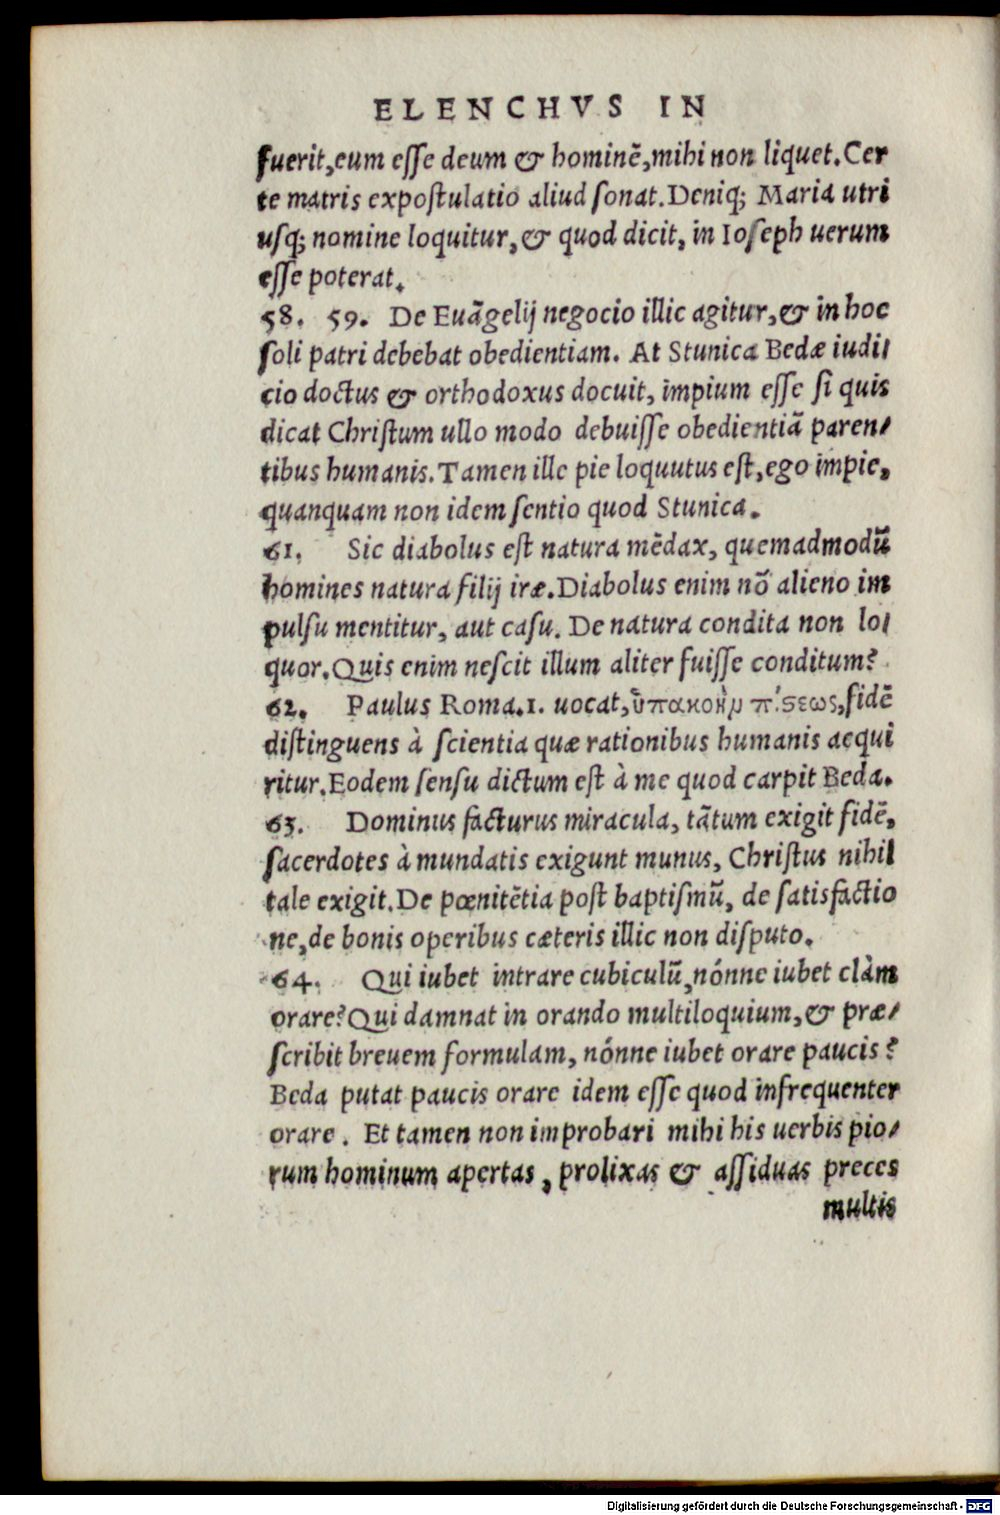 ELENCHVS IN
fuerit, eum esse deum & hominẽ, mihi non liquet. Cer
te matris expostulatio aliud sonat. Deniq; Maria utri
usq; nomine loquitur, & quod dicit, in Ioseph uerum
esse poterat.
58. 59. De Euãgelij negocio illic agitur, & in hoc
soli patri debebat obedientiam. At Stunica Bedæ iudi/
cio doctus & orthodoxus docuit, impium esse si quis
dicat Christum ullo modo debuisse obedientiã paren/
tibus humanis. Tamen ille pie loquutus est, ego impie,
quanquam non idem sentio quod Stunica.
61. Sic diabolus est natura mẽdax, quemadmodũ
homines natura filij iræ. Diabolus enim nõ alieno im
pulsu mentitur, aut casu. De natura condita non lo/
quor. Quis enim nescit illum aliter fuisse conditum?
62. Paulus Roma. 1. uocat, ὑπακοὴν πίστεως, fidẽ
distinguens à scientia quæ rationibus humanis acqui
ritur. Eodem sensu dictum est à me quod carpit Beda.
63. Dominus facturus miracula, tãtum exigit fidẽ,
sacerdotes à mundatis exigunt munus, Christus nihil
tale exigit. De pœnitẽtia post baptismũ, de satisfactio
ne, de bonis operibus cæteris illic non disputo.
64. Qui iubet intrare cubiculũ, nónne iubet clàm
orare? Qui damnat in orando multiloquium, & præ/
scribit breuem formulam, nónne iubet orare paucis?
Beda putat paucis orare idem esse quod infrequenter
orare. Et tamen non improbari mihi his uerbis pio/
rum hominum apertas, prolixas & assiduas preces
multis
Digitalisierung gefördert durch die Deutsche Forschungsgemeinschaft - DFG